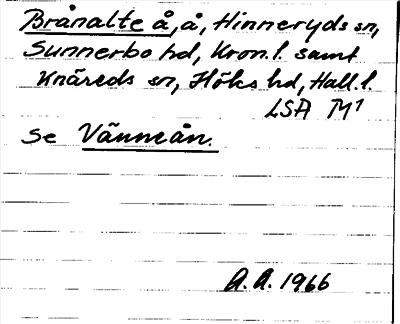 Brånalte å, å, Hinneryds sn,
Sunnerbo hd, Kron.l. samt
Knäreds sn, Höks hd, Hall.l.
LSA M1
se Vänneån.
A.A. 1966